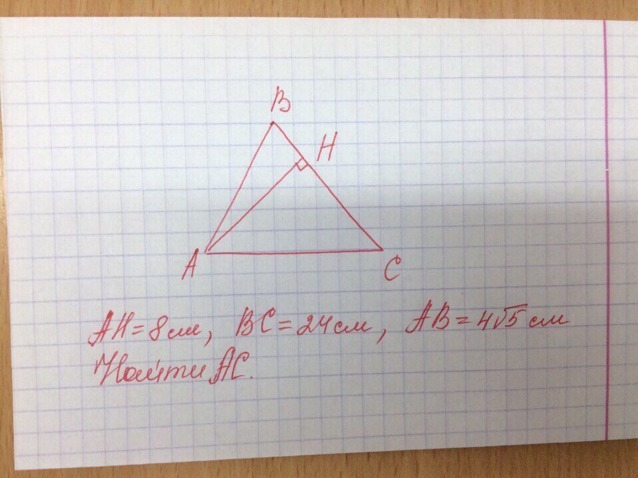 B
H
A
C
AH = 8 см, BC = 24 см, AB = 4√5 см
Найти AC.